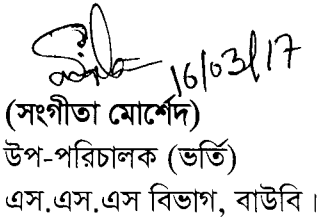 16/03/17
(সংগীতা মোর্শেদ)
উপ-পরিচালক (ভর্তি)
এস.এস.এস বিভাগ, বাউবি।